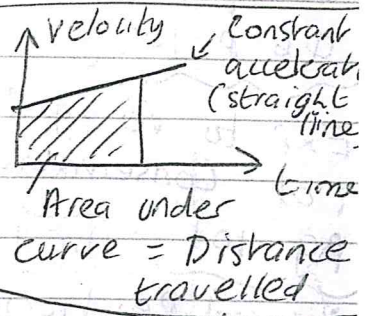 velocity
Constant
accelerat
(straight
line
time
Area under
curve = Distance
travelled